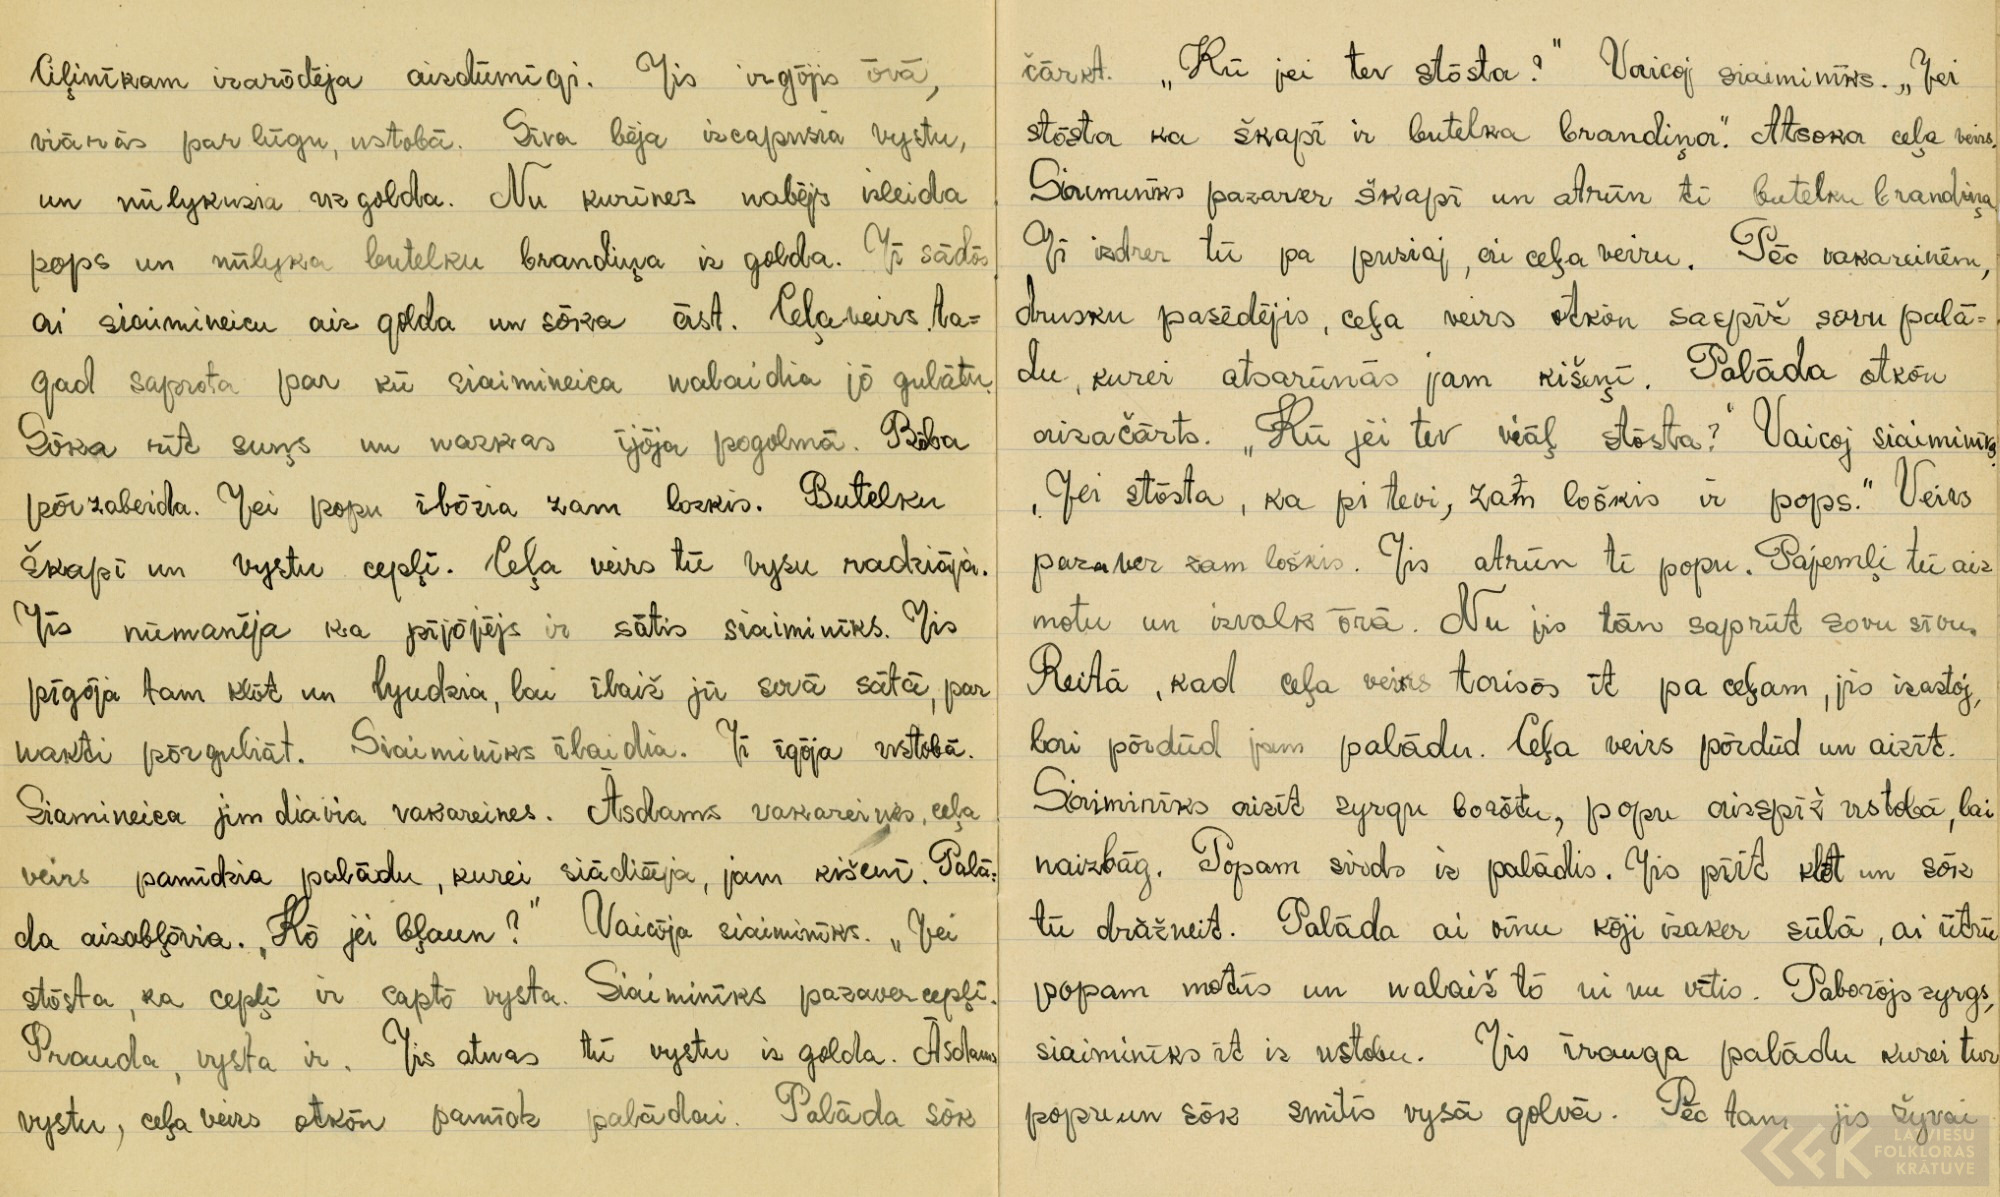 Ciļinīkam izarōdēja aizdūmīgi. Jis izgōjis ōrā,
viāräs par lūgu, ustobā. Sīva bēja izcapusia vystu,
un nūlykusia uz golda. Nu kurīnes nabējs izleida
pops un nūlyka butelku brandiņa iz golda. Jī sādōs
ai siaimineicu aiz golda un sōka āst. Ceļaveirs ta=
gad saprota par kū siaimineica nalaidia jō gulātu.
Sōka rīt suņs un nazkas ījōja pogolmā. Bōba
pōrzabeida. Jei popu ībōzia zam lozkis. Butelku
škapī un vystu cepļī. Ceļa veirs tū vysu radziāja.
Jis nūmanēja ka pījōjējs ir sātis siaiminīks. Jis
pīgōja tam klōt un lyudzia, lai īlaiž jū sovā sātā, par
nakti pōrguliāt. Siaiminīks īlaidia. Jī īgōja ustobā.
Siamineica jim diavia vakareines. Āsdams vakareines, ceļa
veirs pamīdzia palādu, kurei siādiāja, jam kišenī. Palā=
da aizabļōvia. „Kō jei bļaun?" Vaicōja siaiminīks. „Jei
stōsta, ka cepļī ir captō vysta. Siaiminīks pazaver cepļī.
Prauda, vysta ir. Jis atnas tū vystu iz golda. Āsdams
vystu, ceļa veirs otkōn pamīdz palādai. Palāda sōk
čārkt. „Kū jei tev stōsta?" Vaicoj siaiminīks. „Jei
stōsta ka škapī ir butelka brandiņa". Atsoka ceļa veirs.
Siaiminīks pazaver škapī un atrūn tī butelku brandiņa
Jī izdzer tū pa pusiaj, ai ceļa veiru. Pēc vakareinēm,
drusku pasēdējis, ceļa veirs otkōn saspīž sovu palā=
du, kurei atsarūnās jam kišeņī. Palāda otkōn
aizačārts. „Kū jei tev viāļ stōsta?" Vaicoj siaiminīks
„Jei stōsta, ka pi tevi, zam loškis ir pops." Veirs
pazaver zam loškis. Jis atrūn tī popu. Pajemļi tū aiz
motu un izvalk ōrā. Nu jis tān saprūt sovu sīvu.
Reitā, kad ceļa veirs taisōs īt pa ceļam, jis izastōj,
lai pōrdūd jam palādu. Ceļa veirs pōrdūd un aizīt.
Siaiminīks aizīt zyrgu borōtu, popu aizspīž ustobā, lai
naizbāg. Popam sirds iz palādis. Jis pīīt klōt un sōk
tū drāžneit. Palāda ai vīnu kōji izaker sūlā, ai ūtru
popam motūs un nalaiž tō ni nu vītis. Paborōjs zyrgs,
siaiminīks īt iz ustobu. Jis īrauga palādu kurei tur
popu un sōk smītīs vysā golvā. Pēc tam jis žyvai
LATVIEŠU
FOLKLORAS
KRĀTUVE